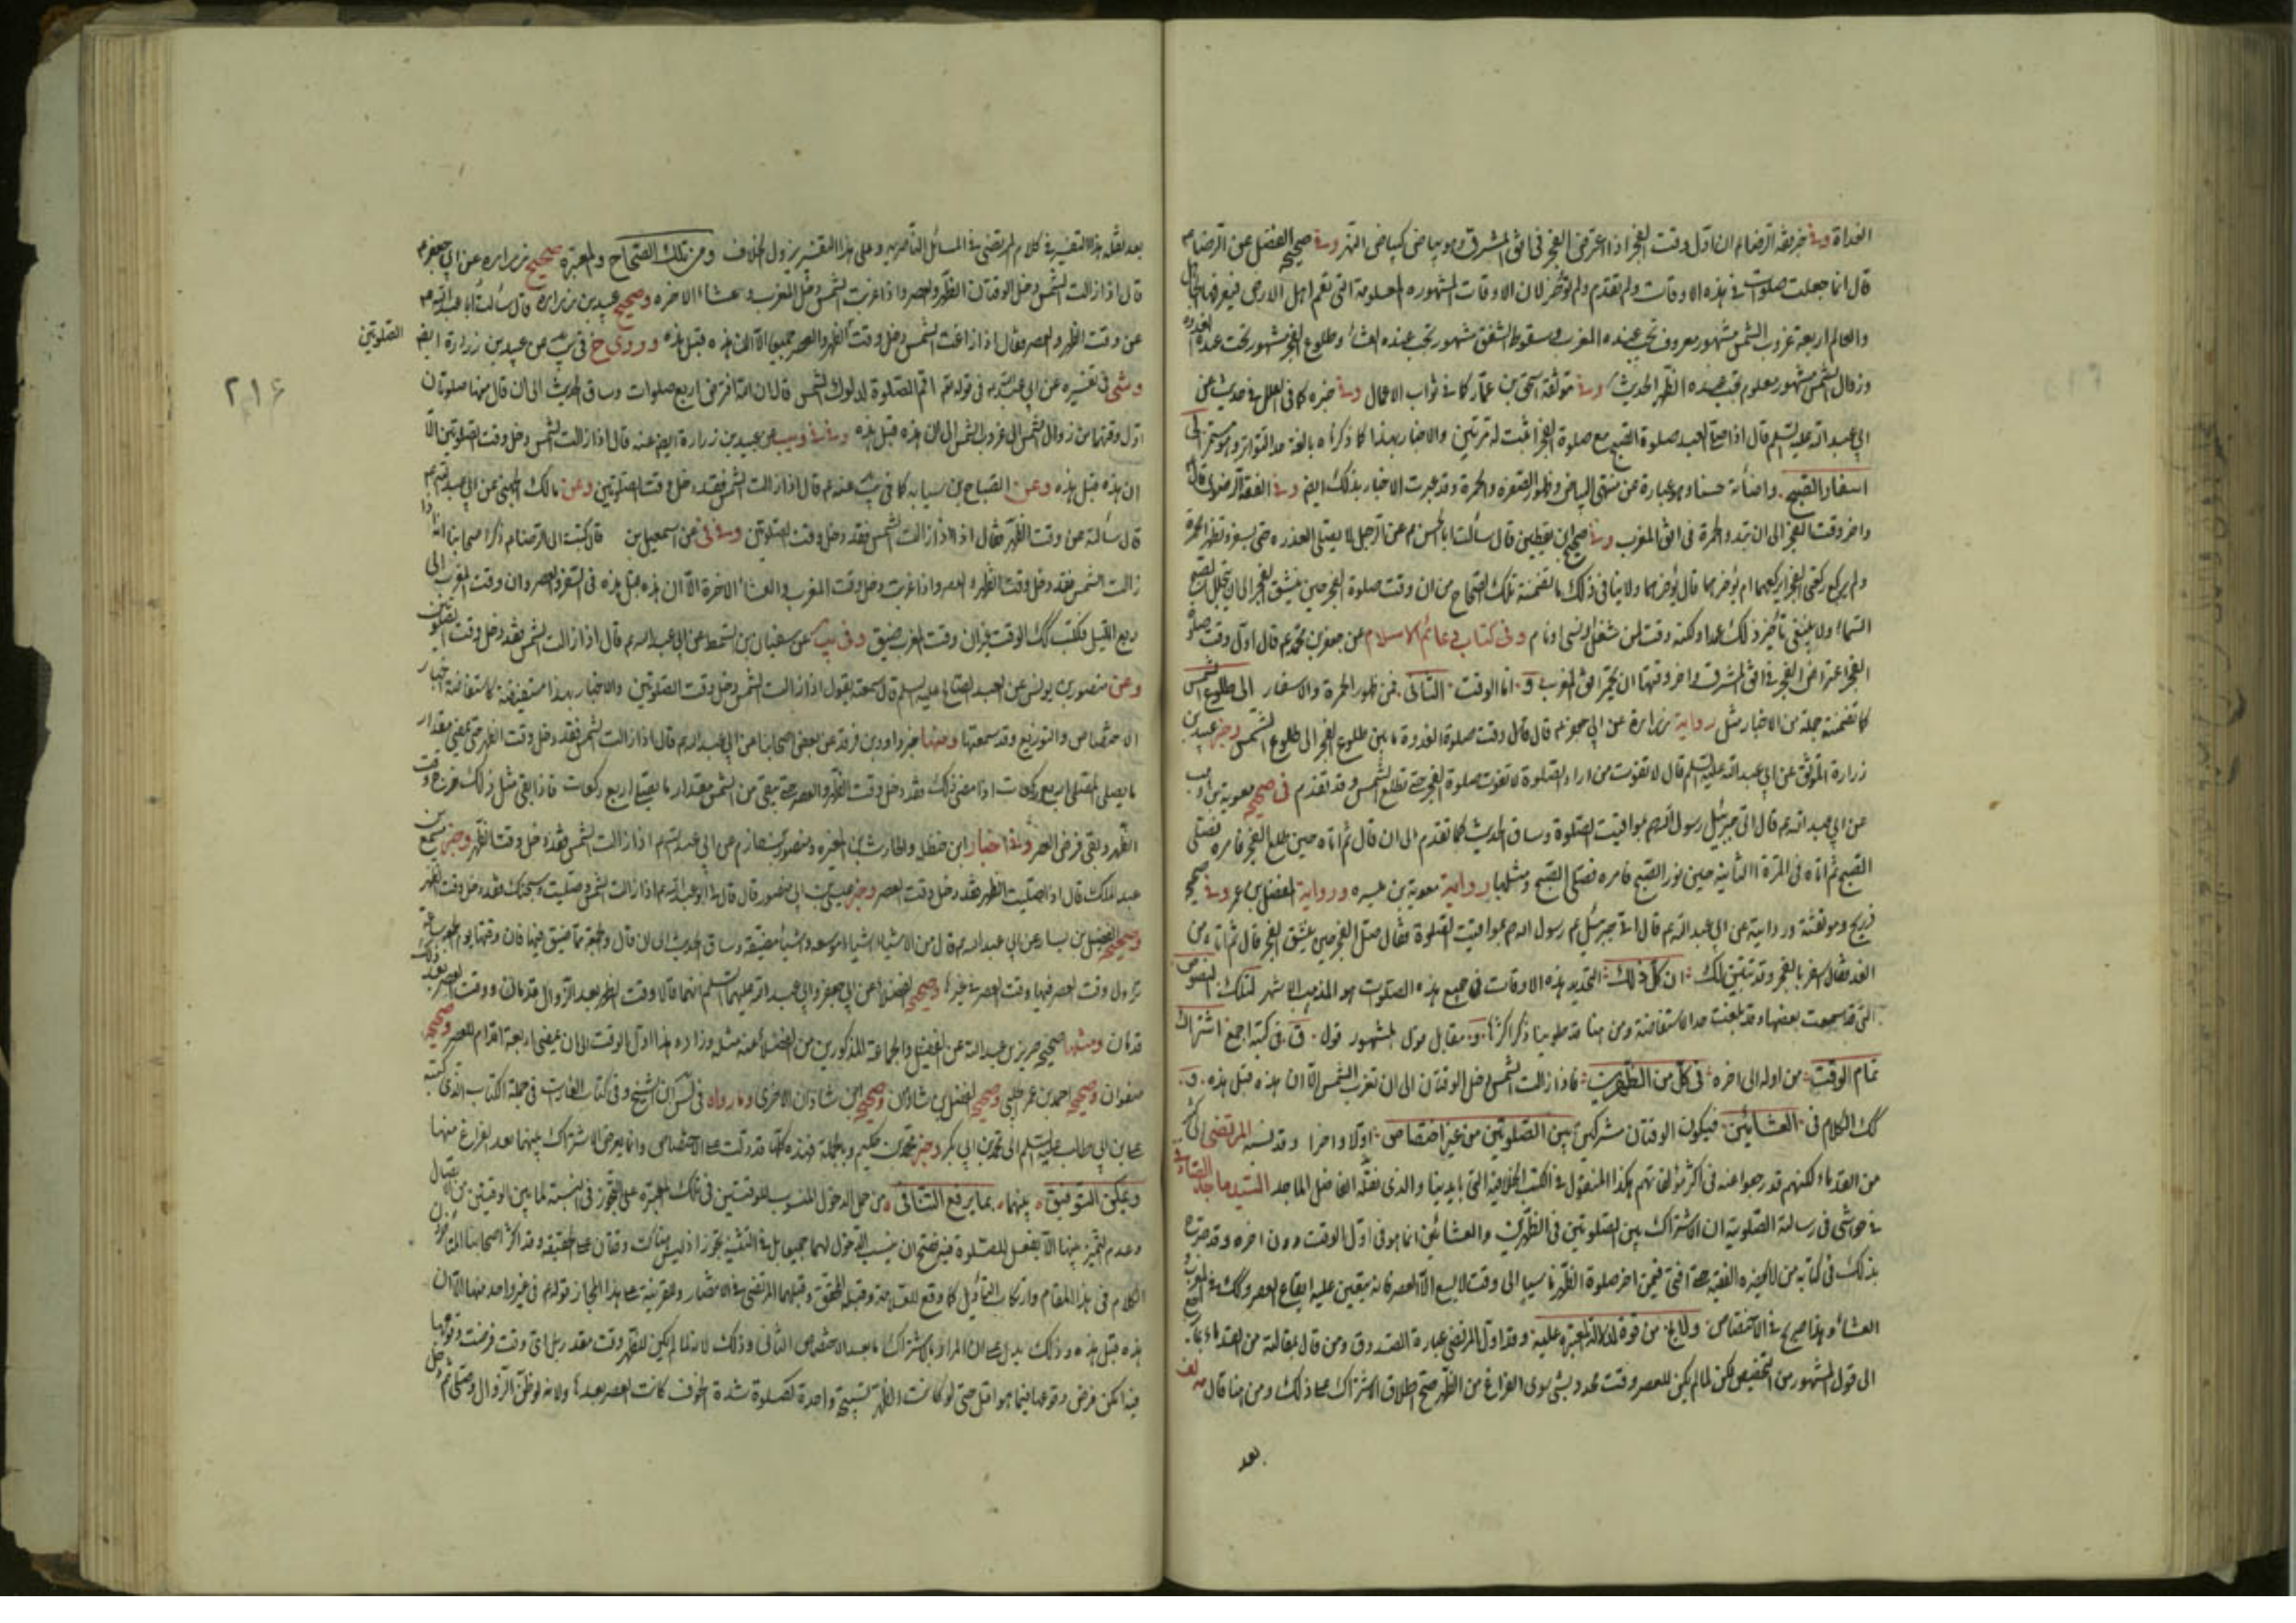 الغداة وفي خبر فقه الرضا ان اول وقت الفجر اذا اعترض الفجر في افق المشرق وهو بياض كبياض النهر وفي صحيح الفضل عن الرضا
قال انما جعلت صلوات في هذه الاوقات ولم تقدم ولم تؤخر لان الاوقات المشهورة المعلومة التي تعم اهل الارض فيعرفها الجاهل
والعالم اربعة غروب الشمس مشهور معروف تجب عنده المغرب وسقوط الشفق مشهور تجب عنده العشاء وطلوع الفجر مشهور تجب عنده الغدوة
وزوال الشمس مشهور معلوم يجب عنده الظهر الحديث وفي موثقة اسحق بن عمار كما في ثواب الاعمال وفي خبره كما في العلل في حديث عن
ابي عبد الله عليه السلم قال اذا صلى العبد صلوة الصبح مع صلوة الفجر اثبت له مرتين والاخبار بهذا كما ذكرناه بالغة حد التواتر وهو مستمر الى
اسفار الصبح واضائه حسنا وهو عبارة عن منتهى البياض وظهور الصفرة والحمرة وقد عبرت الاخبار بذلك ايضا وفي الفقه الرضوي قال
واخر وقت الفجر الى ان تبدو الحمرة في افق المغرب وفي صحيح ابن يقطين قال سألت ابا الحسن عن الرجل لا يصلي الغداة حتى يسفر وتظهر الحمرة
ولم يركع ركعتي الفجر ايركعهما ام يؤخرهما قال يؤخرهما ولا ينافي ذلك ما تضمنته تلك الصحاح من ان وقت صلوة الفجر حين ينشق الفجر الى ان يتجلل الصبح
السماء ولا ينبغي تأخير ذلك عمدا ولكنه وقت لمن شغل او نسى او نام وفي كتاب دعائم الاسلام عن جعفر بن محمد قال اول وقت صلوة
الفجر اعتراض الفجر في افق المشرق واخر وقتها ان يحمر افق المغرب و اما الوقت الثاني فمن ظهور الحمرة والاسفار الى طلوع الشمس
كما تضمنته جملة من الاخبار مثل رواية زرارة عن ابي جعفر قال قال وقت صلوة الغدوة ما بين طلوع الفجر الى طلوع الشمس وخبر عبيد بن
زرارة الموثق عن ابي عبد الله عليه السلم قال لا تفوت من اراد الصلوة لا تفوت صلوة الفجر حتى تطلع الشمس وقد تقدم في صحيح معوية بن وهب
عن ابي عبد الله قال اتى جبرئيل رسول الله بمواقيت الصلوة وساق الحديث كما تقدم الى ان قال ثم اتاه حين طلع الفجر فامره فصلى
الصبح ثم اتاه في المرة الثانية حين نور الصبح فامره فصلى الصبح ومثلها رواية معوية بن ميسره ورواية المفضل بن عمر وفي صحيح
ذريح وموثقته وروايته عن ابي عبد الله قال اتى جبرئيل رسول الله بمواقيت الصلوة فقال صل الفجر حين ينشق الفجر قال ثم اتاه من
الغد فقال اسفر بالفجر وقد تبين لك ان كل ذلك التحديد بهذه الاوقات في جميع هذه الصلوت هو المذهب الاشهر لتلك النصوص
التي قد سمعت بعضها وقد بلغت حد الاستفاضة ومن هنا قد طوينا ذكر اكثرها و مقابل قول المشهور قول ق في كتبه اجمع اشتراك
تمام الوقت من اوله الى اخره في كل من الظهرين فاذا زالت الشمس دخل الوقتان الى ان تغرب الشمس الا ان هذه قبل هذه و
كك الكلام في العشائين فيكون الوقتان مشتركين بين الصلوتين من غير اختصاص اولا واخرا وقد نسبه المرتضى الى كثير
من القدماء لكنهم قد رجعوا عنه في اكثر مؤلفاتهم هكذا المنقول في الكتب الخلافية التي بايدينا والذي نقله الفاضل الماجد السيد ماجد الصادقي
في حواشي رسالة الصلوتية ان الاشتراك بين الصلوتين في الظهرين والعشائين انما هو في اول الوقت دون اخره وقد صرح
بذلك في كتابه من لا يحضره الفقيه حتى افتى فيمن اخر صلوة الظهر ناسيا الى وقت لا يسع الا العصر فانه يتعين عليه ايقاع العصر وكك في المغرب و
العشاء وهذا صريح في الاختصاص ولا يخ من قوة لدلالة المعتبرة عليه وقد اول المرتضى عبارة الصدوق ومن قال بمقالته من القدماء بما يرجع
الى قول المشهور من التخصيص لكن لما لم يكن للعصر وقت محدود بشئ سوى الفراغ من الظهر صح اطلاق الاشتراك على ذلك ومن هنا قال في لف
بعد
بعد نقله هذا التفسير في كلام المرتضى في المسائل الناصرية وعلى هذا التفسير يزول الخلاف ومن تلك الصحاح والمعتبرة صحيح زرارة عن ابي جعفر
قال اذا زالت الشمس دخل الوقتان الظهر والعصر واذا غربت الشمس دخل المغرب وعشاء الاخره وصحيح عبيد بن زرارة قال سألت ابا عبد الله
عن وقت الظهر والعصر فقال اذا زاغت الشمس دخل وقت الظهر والعصر جميعا الا ان هذه قبل هذه وروى خ في يب عن عبيد بن زرارة ايضا الصلوتين
وشى في تفسيره عن ابي عبد الله في قوله تع اقم الصلوة لدلوك الشمس قال ان الله افترض اربع صلوات وساق الحديث الى ان قال منها صلوتان
اول وقتهما من زوال الشمس الى غروب الشمس الا ان هذه قبل هذه وفي في ويب عن عبيد بن زرارة ايضا عنه قال اذا زالت الشمس دخل وقت الصلوتين الا
ان هذه قبل هذه وعن الصباح بن سيابه كما في يب عنه قال اذا زالت الشمس فقد دخل وقت الصلوتين وعن مالك الجهني عن ابي عبد الله
قال سألته عن وقت الظهر فقال اذا زالت الشمس فقد دخل وقت الصلوتين وفي في عن اسمعيل بن قال كتبت الى الرضا ذكر اصحابنا انه اذا
زالت الشمس فقد دخل وقت الظهر والعصر واذا غربت دخل وقت المغرب والعشاء الاخرة الا ان هذه قبل هذه في السفر والحضر وان وقت المغرب الى
ربع الليل فكتب كك الوقت غير ان وقت المغرب ضيق وفي يب عن سفيان بن السمط عن ابي عبد الله قال اذا زالت الشمس فقد دخل وقت الصلوتين
وعن منصور بن يونس عن العبد الصالح عليه السلم قال سمعته يقول اذا زالت الشمس دخل وقت الصلوتين والاخبار بهذا مستفيضة كاستفاضة اخبار
الاختصاص والتوزيع وقد سمعتها ومنها خبر داود بن فرقد عن بعض اصحابنا عن ابي عبد الله قال اذا زالت الشمس فقد دخل وقت الظهر حتى يمضي مقدار
ما يصلي المصلي اربع ركعات اذا مضى ذلك فقد دخل وقت الظهر والعصر حتى يبقى من الشمس مقدار ما يصلي اربع ركعات فاذا بقى مثل ذلك خرج وقت
الظهر وبقى فرض العصر وفي اخبار ابن حنظلة والحارث بن المغيرة ومنصور بن حازم عن ابي عبد الله اذا زالت الشمس فقد دخل وقت الظهر وخبر مسمع بن
عبد الملك قال اذا صليت الظهر فقد دخل وقت العصر وخبر عيسى بن ابي منصور قال قال لي ابو عبد الله اذا زالت الشمس وصليت سبحتك فقد دخل وقت الظهر
وصحيح الفضيل بن يسار عن ابي عبد الله قال من الاشياء اشياء موسعه واشياء مضيقة وساق الحديث الى ان قال والجمعة مما ضيق فيها فان وقتها يوم الجمعة ساعة
تزول وقت العصر فيها وقت العصر في غيرها وصحيح الفضلاء عن ابي جعفر وابي عبد الله عليهما السلم انهما قالا وقت الظهر بعد الزوال قدمان ووقت العصر بعد ذلك
قدمان ومثلها صحيح حريز بن عبد الله عن الفضيل والجماعة المذكورين من الفضلاء عنه مثله وزاد هذا اول الوقت الى ان يمضي اربعة اقدام للعصر وصحيح
صفوان وصحيح احمد بن عمر الحلبي وصحيح الفضل بن شاذان وصحيح ابن شاذان الاخرى وما رواه في لس ابن الشيخ وفي كتاب الغارات في جملة الكتاب الذي كتبه
علي بن ابي طالب عليه السلم الى محمد بن ابي بكر وخبر محمد بن حكيم وبالجملة فهذه كلها قد دلت على الاختصاص وانما يعرض الاشتراك بينهما بعد الفراغ منها
ويمكن التوفيق بينهما بما يرفع التنافي من حمل الدخول المنسوب للوقتين في تلك المعتبرة على التجوز في النسبة لما بين الوقتين من الاتصال
وعدم التميز بينها الا بفعل الصلوة فيه فصح ان ينسب الدخول لهما جميعا بل في التثنية تجوز اذ ليس هناك وقتان على الحقيقة وقد اكثر اصحابنا المتأخرون
الكلام في هذا المقام وارتكاب التأويل كما وقع للعلامة وقبله المحقق وقبلهما المرتضى في الانتصار والقرينة على هذا المجاز قوله في غير واحد منها الا ان
هذه قبل هذه وذلك يدل على ان المراد بالاشتراك ما بعد الاختصاص الثاني وذلك لانه لما لم يكن للظهر وقت مقدر بل اي وقت فرضت وقوعها
فيه امكن فرض وقوعها فيما هو اقل حتى لو كانت الظهر تسبيحة واحدة كصلوة شدة الخوف كانت العصر بعدها ولانه لو ظن الزوال وصلى ثم دخل
٢١٦